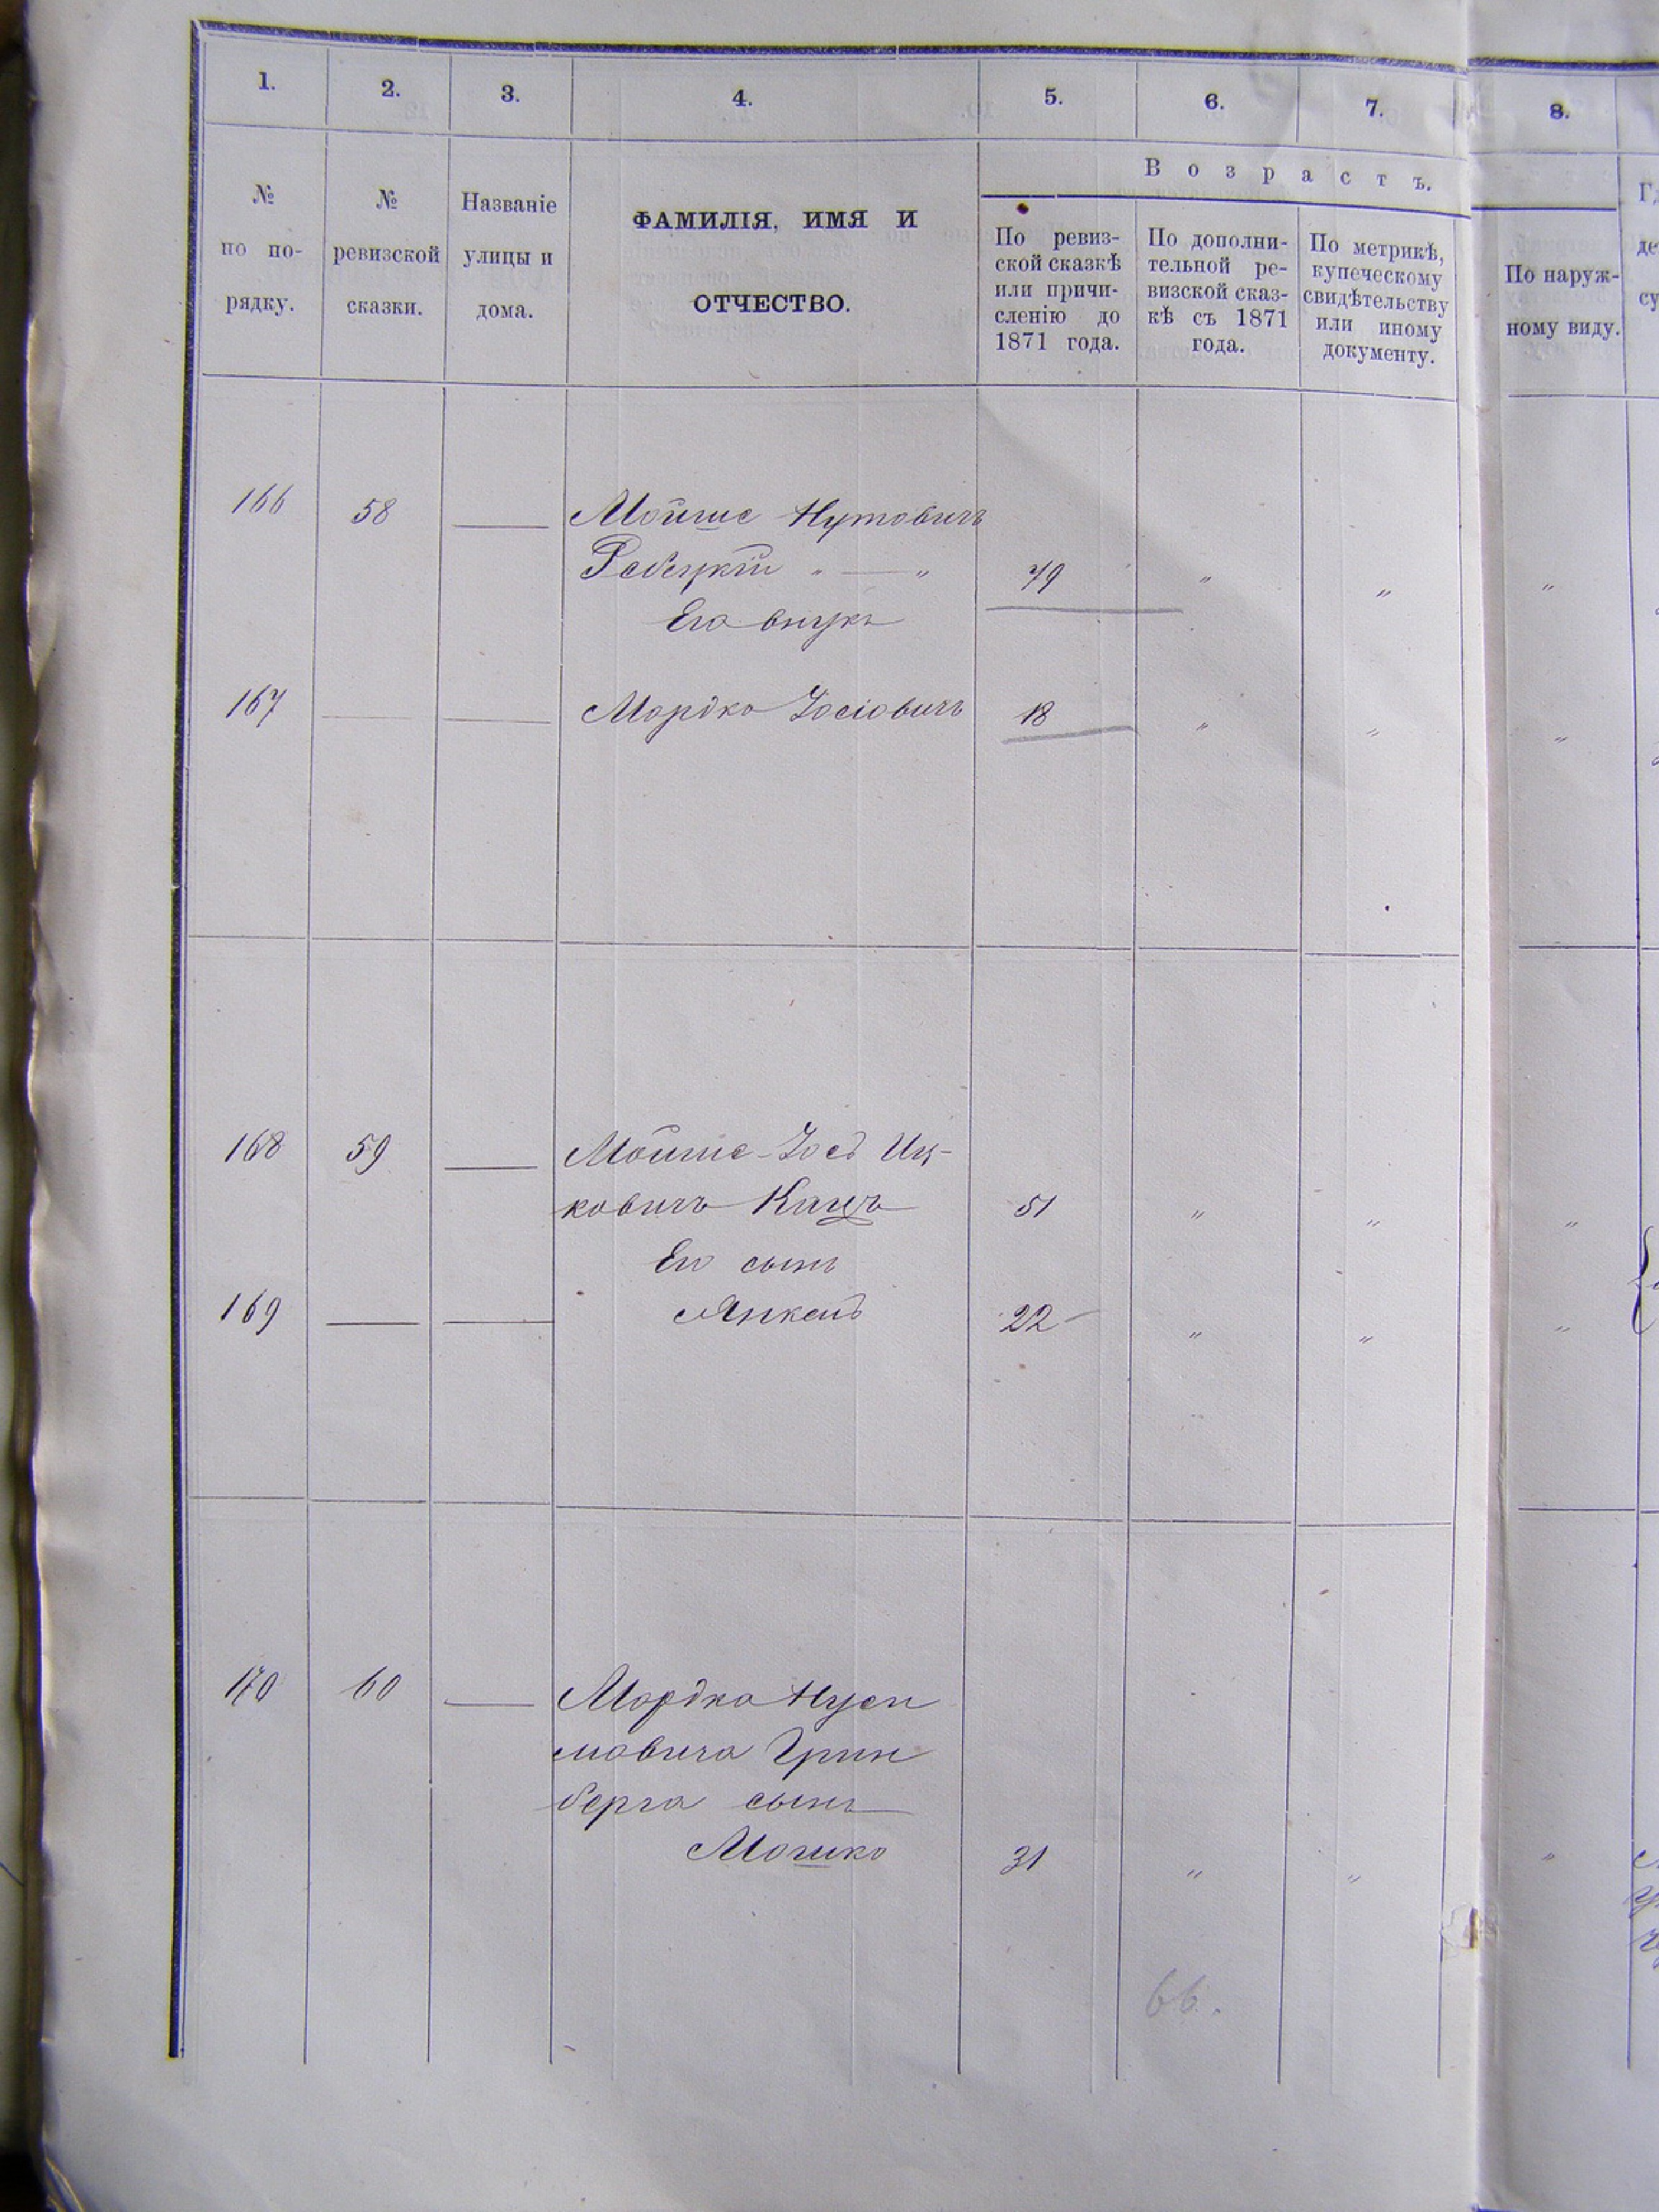 1. 2. 3. 4. 5. 6. 7. 8.
Возрастъ.
№ по по-
рядку.
№
ревизской
сказки.
Названіе
улицы и
дома.
ФАМИЛІЯ, ИМЯ И
ОТЧЕСТВО.
По ревиз-
ской сказкѣ
или причи-
сленію до
1871 года.
По дополни-
тельной ре-
визской сказ-
кѣ съ 1871
года.
По метрикѣ,
купеческому
свидѣтельству
или иному
документу.
По наруж-
ному виду.
166 58 — Мойше Нутовичъ
"—" 79 " " "
Его внукъ
167 — — Мордко Іосіовичъ 18 " " "
168 59 — Мойше-Іосъ Иц-
ковичъ Кацъ 51 " " "
Его сынъ
169 — — Янкель 22 " " "
170 60 — Мордка
мовича Грин
берга сынъ
Мошко 31 " " "
66.